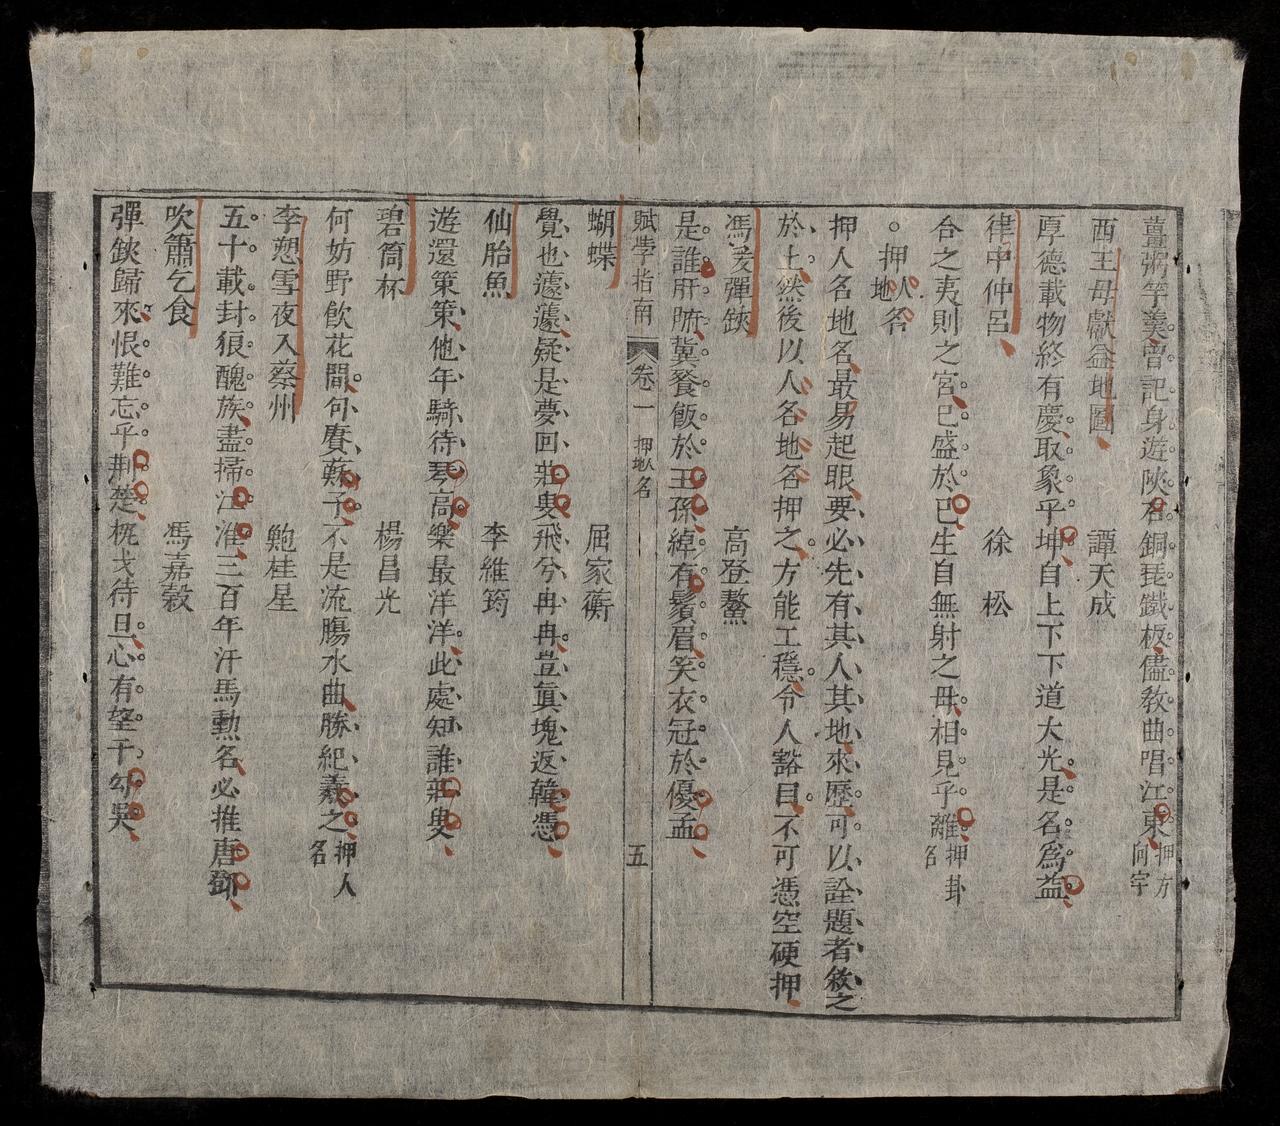 薑粥竽羮曾記身遊陝右銅琵鐵板儘敎曲唱江東押方向字
西王母獻益地圖 譚天成
厚德載物終有慶取象乎坤自上下下道大光是名爲益
律中仲呂 徐松
合之夷則之宮已盛於已生自無射之毋相見乎離押卦名
。押人名地名
押人名地名最易起眼要必先有其人其地來歷可以詮題者敘之
於上然後以人名地名押之方能工穩令人豁目不可憑空硬押
馮爰彈鋏 高登鰲
是誰肝腑冀餐飯於王孫綽有鬚眉笑衣冠於優孟
賦學指南 卷一 押人名地名 五
蝴蝶 屈家蘅
覺也蘧蘧疑是夢回莊叟飛兮冉冉豈眞塊返韓憑
仙胎魚 李維筠
遊還策策他年騎待琴高樂最洋洋此處知誰莊叟
碧筒杯 楊昌光
何妨野飮花間句賡蘇子不是流觴水曲勝紀羲之押人名
李愬雪夜入蔡州 鮑桂星
五十載封狼醜族盡掃江淮三百年汗馬勲名必推唐鄧
吹簫乞食 馮嘉穀
彈鋏歸來恨難忘乎荆楚梔戈待旦心有望乎勾吳